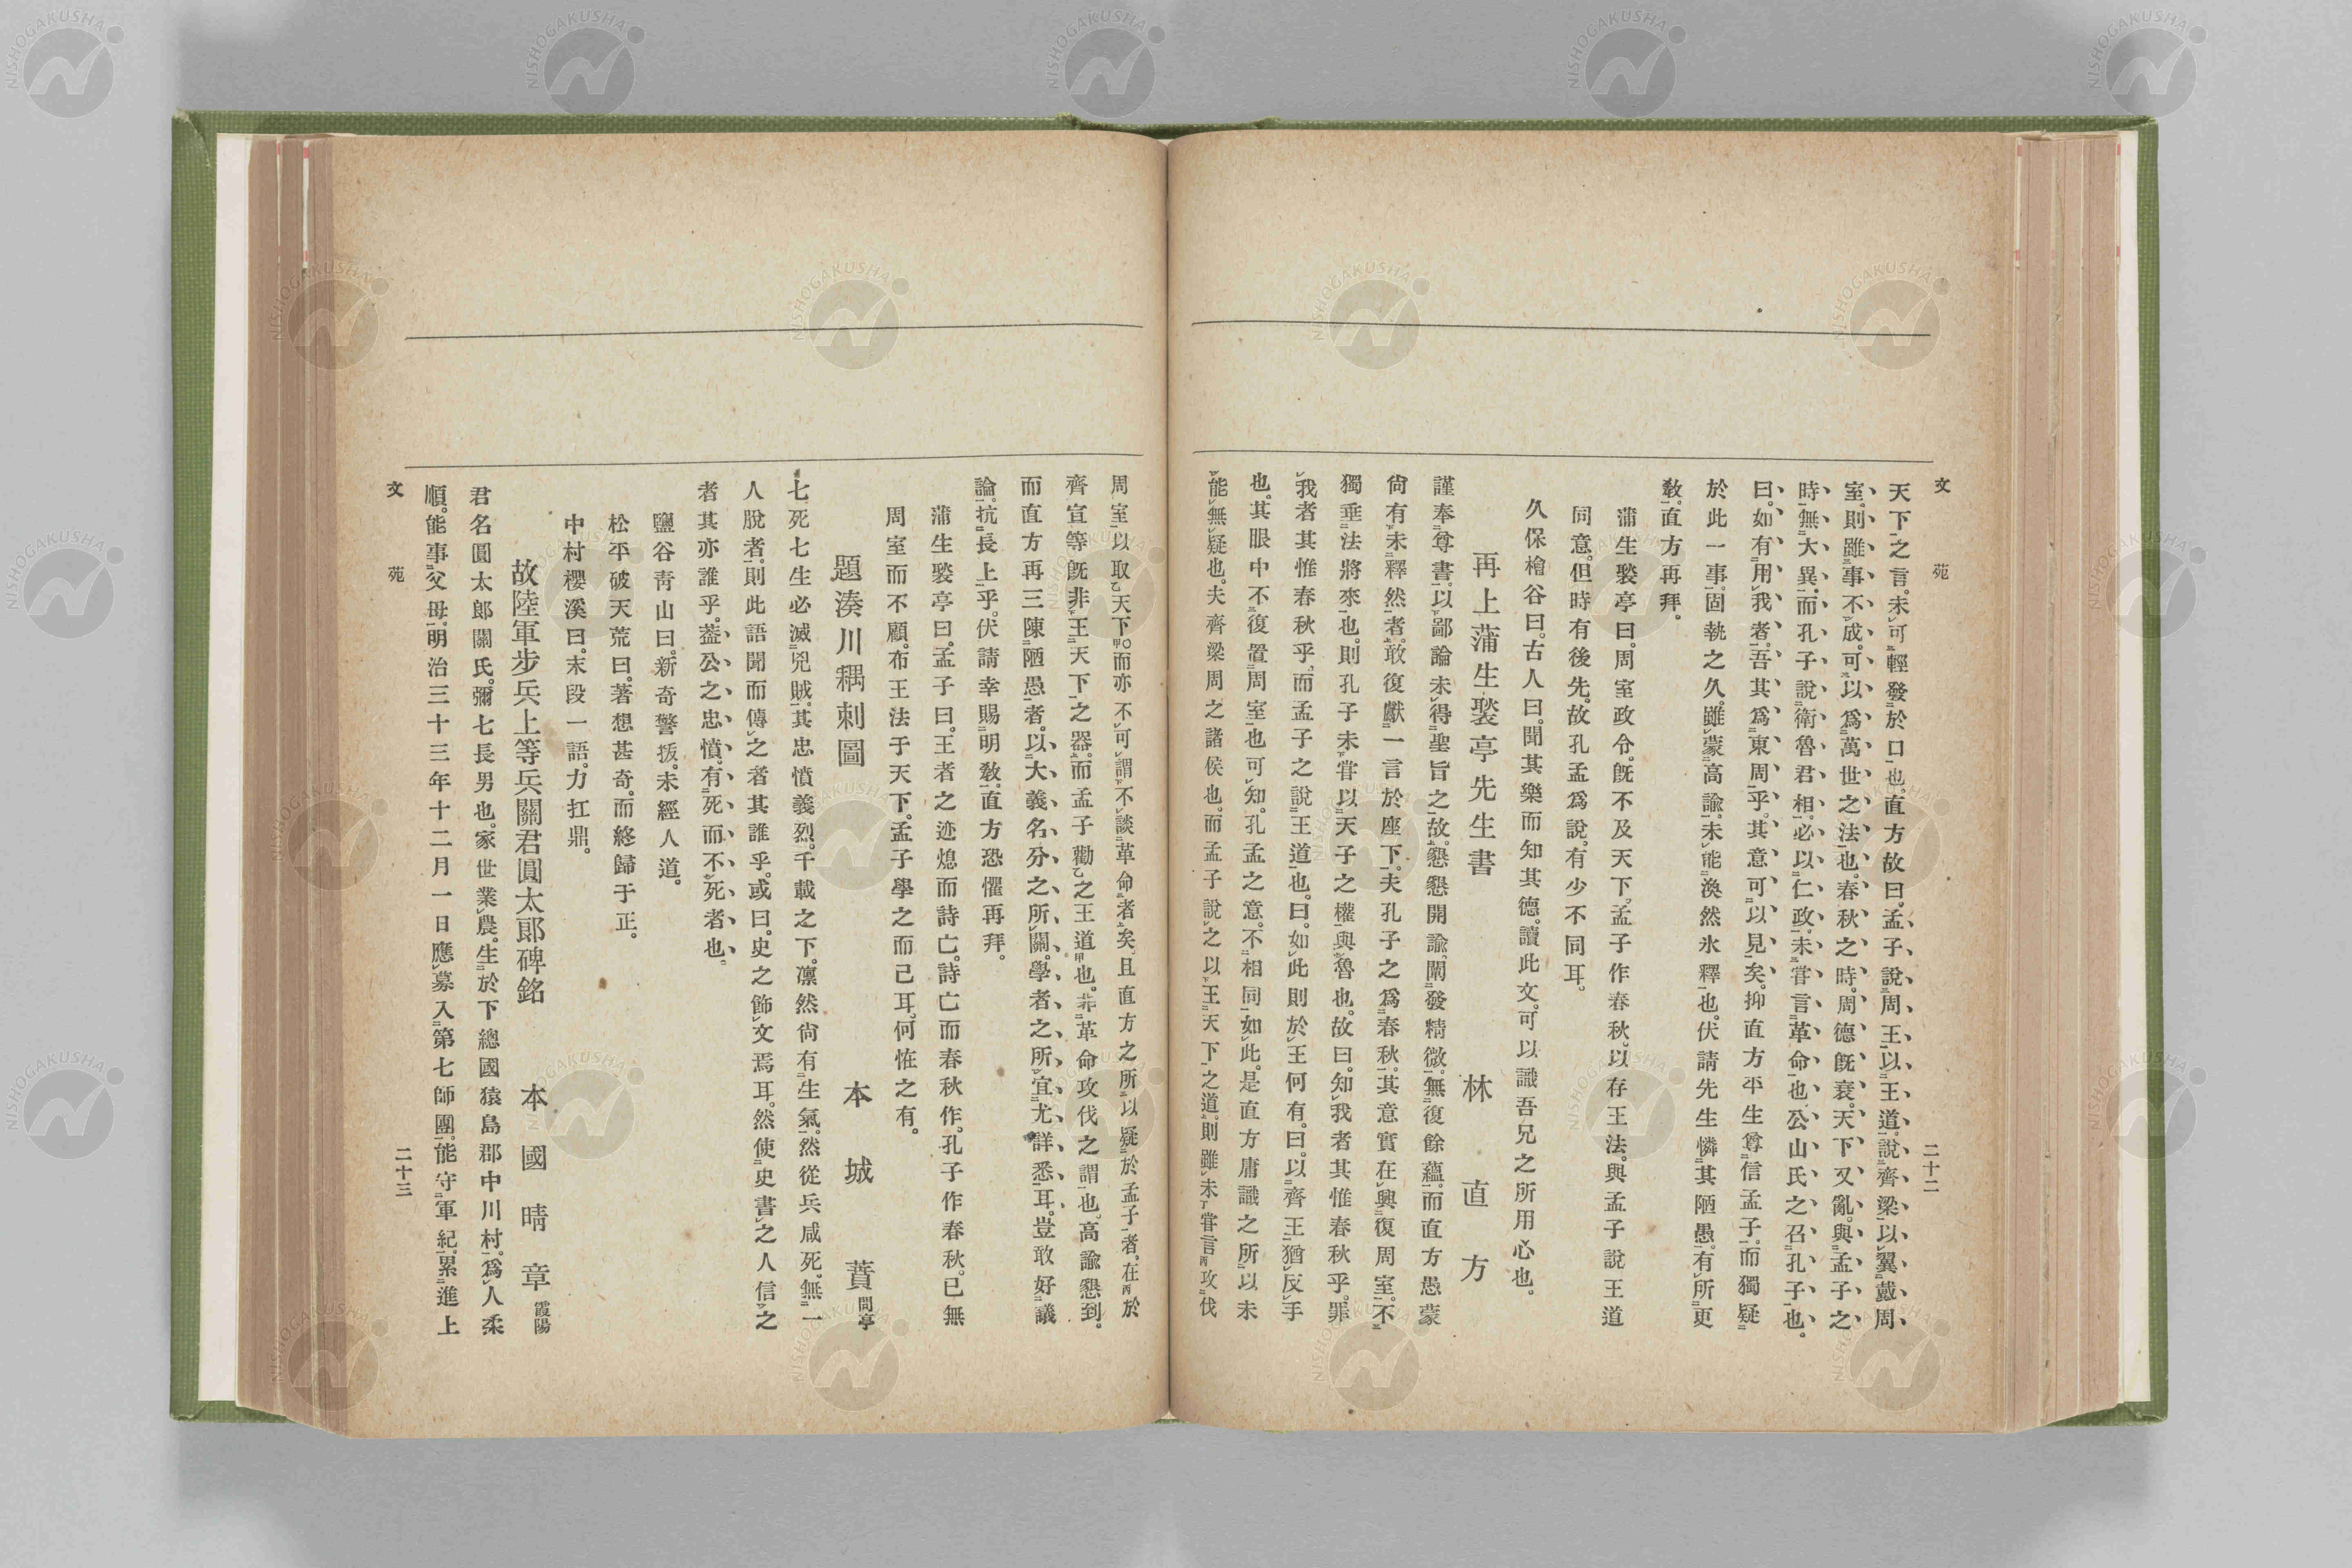 文苑
二十二
天下之言。未可輕發於口也。直方故曰。孟子說周王以王道。說齊梁以翼戴周
室。則雖事不成。可以爲萬世之法也。春秋之時。周德既衰。天下又亂。與孟子之
時無大異。而孔子說衛魯君相。必以仁政。未甞言革命也。公山氏之召孔子也。
曰。如有用我者。吾其爲東周乎。其意可以見矣。抑直方平生尊信孟子。而獨疑
於此一事。固執之久。雖蒙高諭。未能渙然氷釋也。伏請先生憐其陋愚。有所更
敎。直方再拜。
蒲生褧亭曰。周室政令。既不及天下。孟子作春秋。以存王法。與孟子說王道
同意。但時有後先。故孔孟爲說。有少不同耳。
久保檜谷曰。古人曰。聞其樂而知其德。讀此文。可以識吾兄之所用心也。
再上蒲生褧亭先生書
林直方
謹奉尊書。以鄙論未得聖旨之故。懇懇開諭。闡發精微。無復餘蘊。而直方愚蒙
尙有未釋然者。敢復獻一言於座下。夫孔子之爲春秋。其意實在興復周室。不
獨垂法將來也。則孔子未甞以天子之權與魯也。故曰。知我者其惟春秋乎。罪
我者其惟春秋乎。而孟子之說王道也。曰。如此則於王何有。曰。以齊王猶反手
也。其眼中不復置周室也可知。孔孟之意。不相同如此。是直方庸識之所以未
能無疑也。夫齊梁周之諸侯也。而孟子說之以王天下之道。則雖未甞言攻伐
周室以取天下。而亦不可謂不談革命者矣。且直方之所以疑於孟子者。在於
齊宣等既非王天下之器。而孟子勸之王道也。非革命攻伐之謂也。高諭懇到。
而直方再三陳陋愚者。以大義名分之所關。學者之所宜尤詳悉耳。豈敢好議
論抗長上乎。伏請幸賜明敎。直方恐懼再拜。
蒲生褧亭曰。孟子曰。王者之迹熄而詩亡。詩亡而春秋作。孔子作春秋。已無
周室而不顧。布王法于天下。孟子學之而已耳。何恠之有。
題湊川耦刺圖
本城蕡問亭
七死七生必滅兇賊。其忠憤義烈。千載之下。凛然尙有生氣。然從兵咸死。無一
人脫者。則此語聞而傳之者其誰乎。或曰。史之飾文焉耳。然使史書之人信之
者其亦誰乎。蓋公之忠憤。有死而不死者也。
鹽谷靑山曰。新奇警拔。未經人道。
松平破天荒曰。著想甚奇。而終歸于正。
中村櫻溪曰。末段一語。力扛鼎。
故陸軍步兵上等兵關君圓太郞碑銘
本國晴章霞陽
君名圓太郞關氏。彌七長男也。家世業農。生於下總國猿島郡中川村。爲人柔
順。能事父母。明治三十三年十二月一日應募入第七師團。能守軍紀。累進上
文苑
二十三